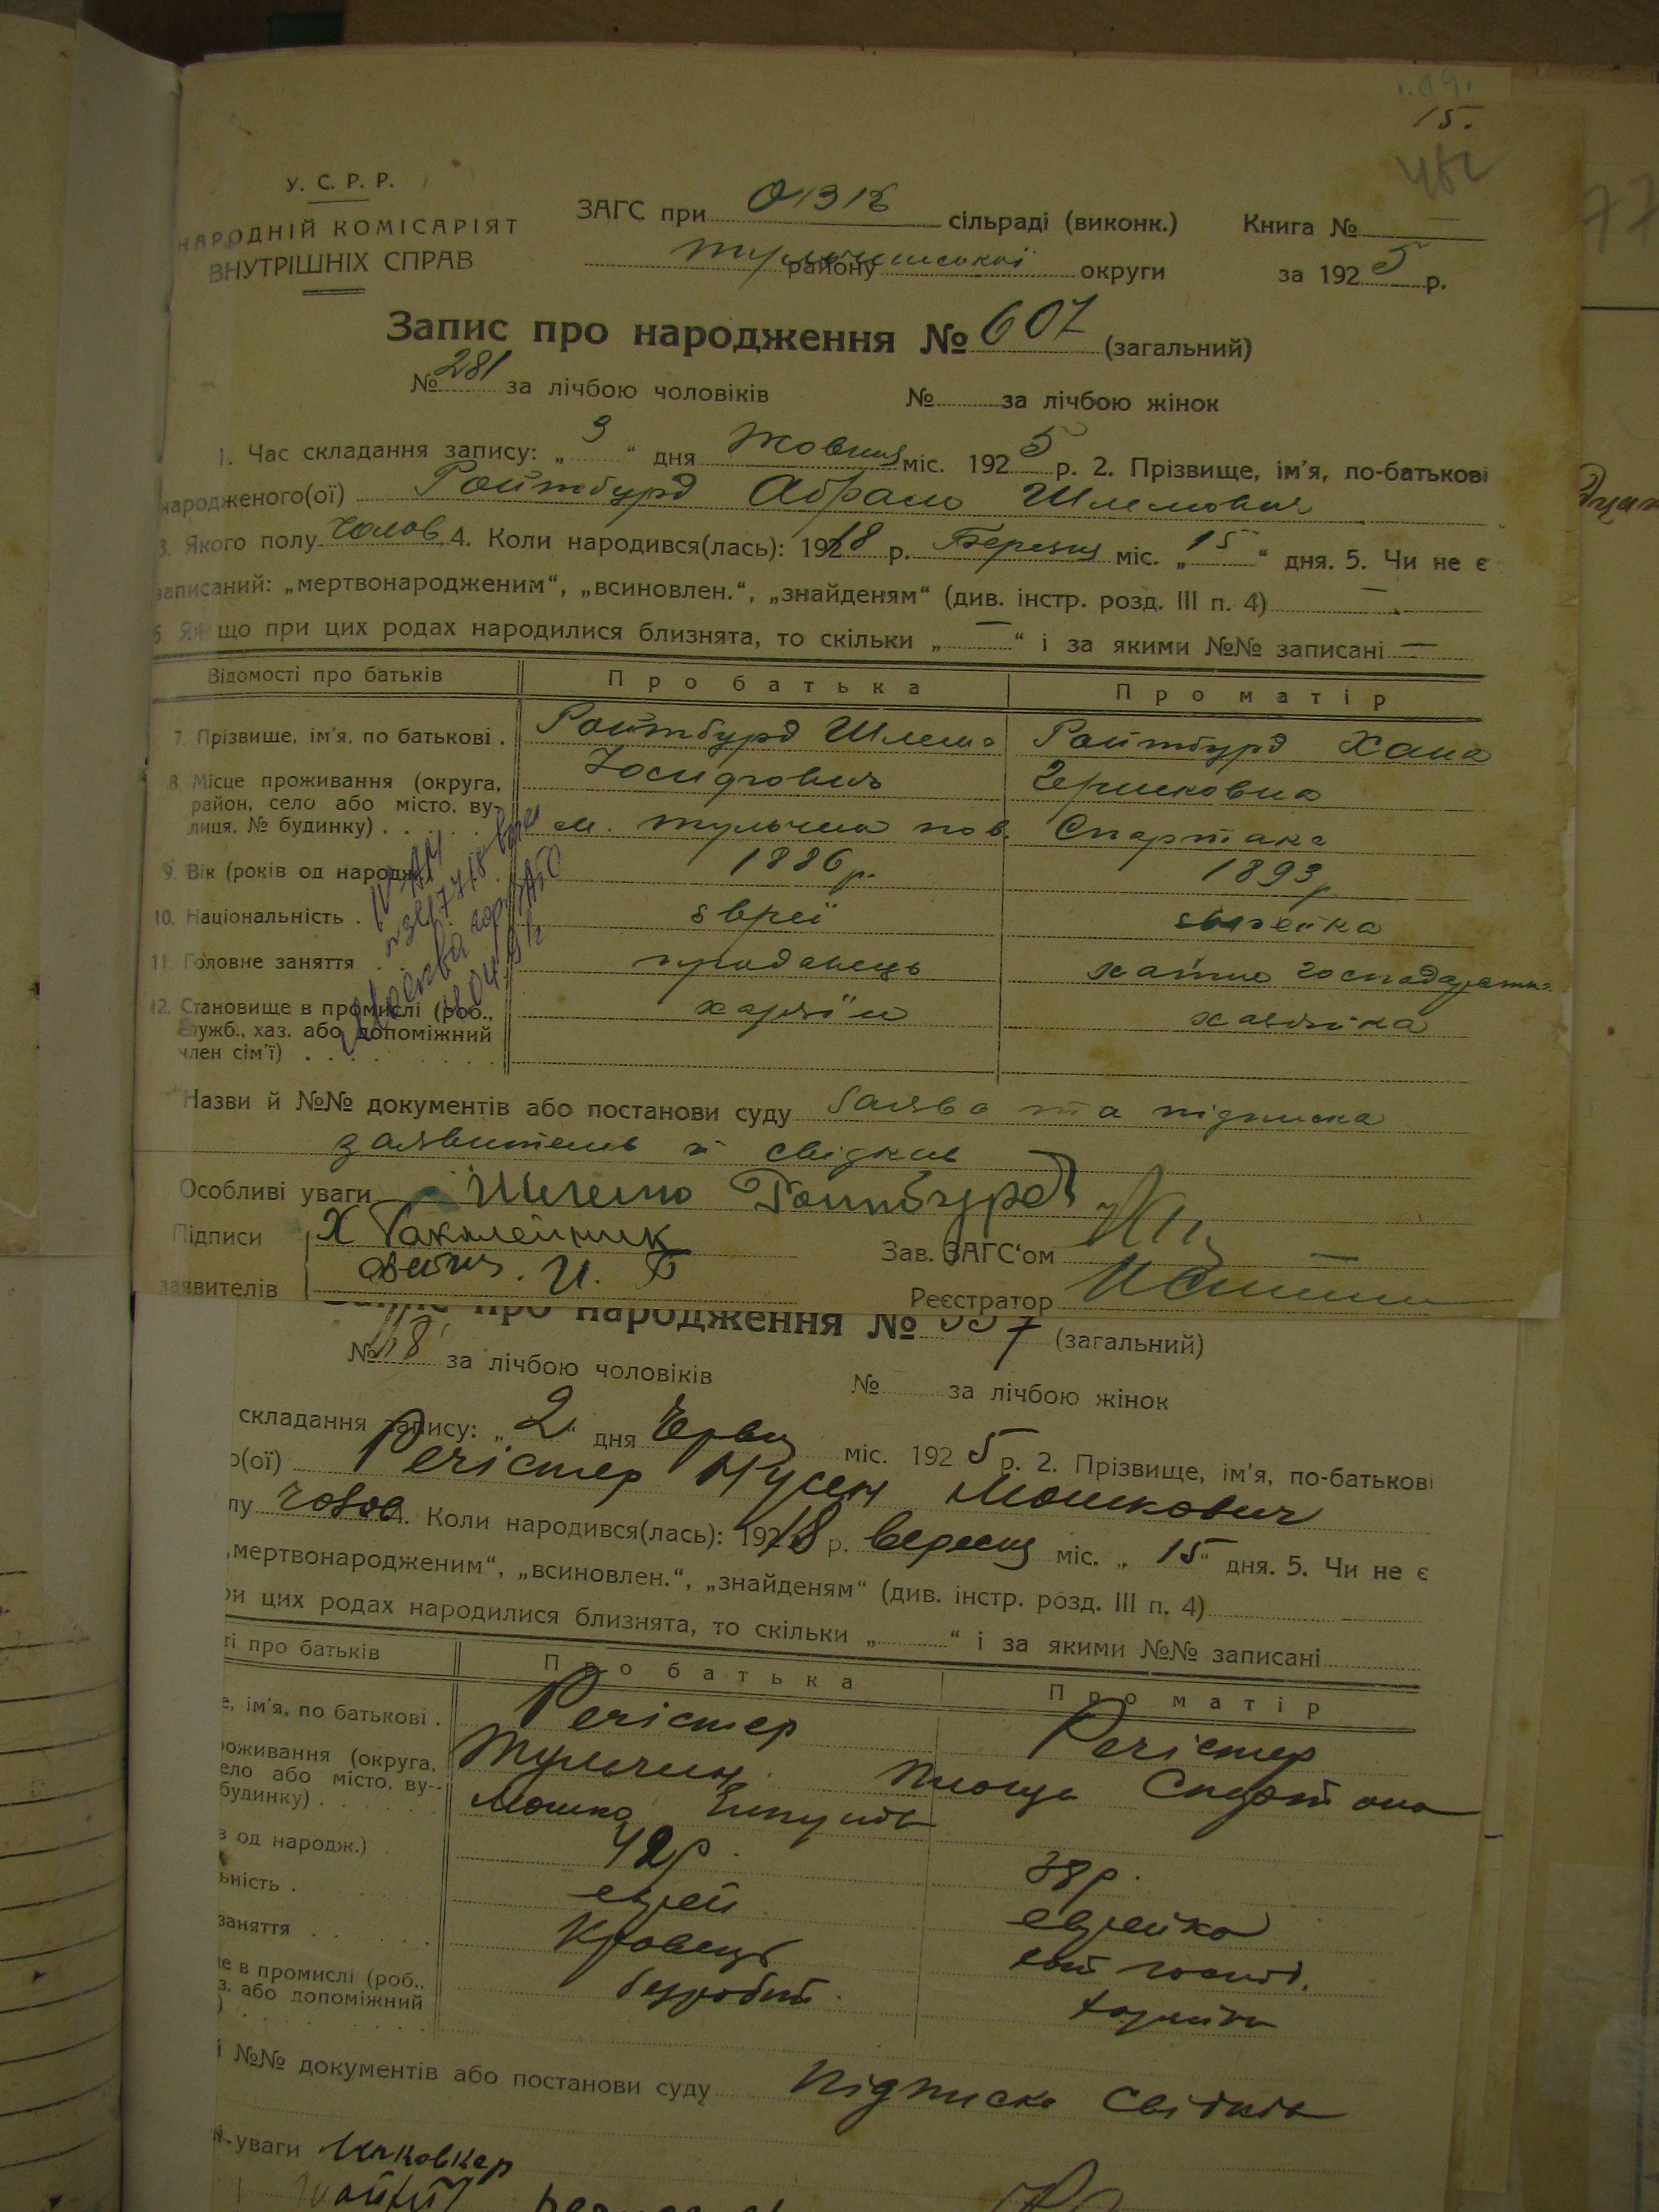 15.
У. С. Р. Р.
НАРОДНІЙ КОМІСАРІЯТ
ВНУТРІШНІХ СПРАВ
ЗАГС при сільраді (виконк.) Книга № —
району округи за 1925 р.
Запис про народження № 607 (загальний)
№ 281 за лічбою чоловіків № за лічбою жінок
1. Час складання запису: „ “ дня Жовтня міс. 1925 р. 2. Прізвище, ім’я, по-батькові
народженого(ої) Ройтбурд Абрам Шлемович
3. Якого полу чолов 4. Коли народився(лась): 1918 р. Березня міс. „15“ дня. 5. Чи не є
записаний: „мертвонародженим“, „всиновлен.“, „знайденям“ (див. інстр. розд. III п. 4) —
6. Якщо при цих родах народилися близнята, то скільки „—“ і за якими №№ записані —
Відомості про батьків Про батька Про матір
7. Прізвище, ім’я, по батькові . Ройтбурд Шлема Ройтбурд Хана
Йосифович Гершковна
8. Місце проживання (округа,
район, село або місто, ву-
лиця, № будинку) . . . . м. Тульчин пов. Спартака
9. Вік (років од народж.) 1886 р. 1893 р
10. Національність . єврей єврейка
11. Головне заняття . . продавець хатнє господарство
12. Становище в промислі (роб., хазяїн хазяйка
служб., хаз. або допоміжний
член сім’ї) . . . .
Назви й №№ документів або постанови суду Заява та підписка
заявитель й свідків
Особливі уваги Шлемо Ройтбурд
Підписи Х Баклейник
заявителів И. Зав. ЗАГС‘ом
Реєстратор
Запис про народження № 337 (загальний)
№ 118 за лічбою чоловіків № за лічбою жінок
складання запису: „2“ дня Червн міс. 1925 р. 2. Прізвище, ім’я, по-батькові
о(ої) Регістер Нусен Мошкович
лу чолов 4. Коли народився(лась): 1918 р. Вересня міс. „15“ дня. 5. Чи не є
„мертвонародженим“, „всиновлен.“, „знайденям“ (див. інстр. розд. III п. 4)
ри цих родах народилися близнята, то скільки „ “ і за якими №№ записані
ті про батьків Про батька Про матір
е, ім’я, по батькові . Регістер Регістер
роживання (округа, Тульчин площа Спартака
ело або місто, ву-
будинку) . Мошко
в од народж.) 42 р. 38 р.
ьність . єврей єврейка
заняття . . Кравець хат госпд.
е в промислі (роб., безробіт. хазяйка
з. або допоміжний
) . . . .
і №№ документів або постанови суду Підписка Свідків
уваги